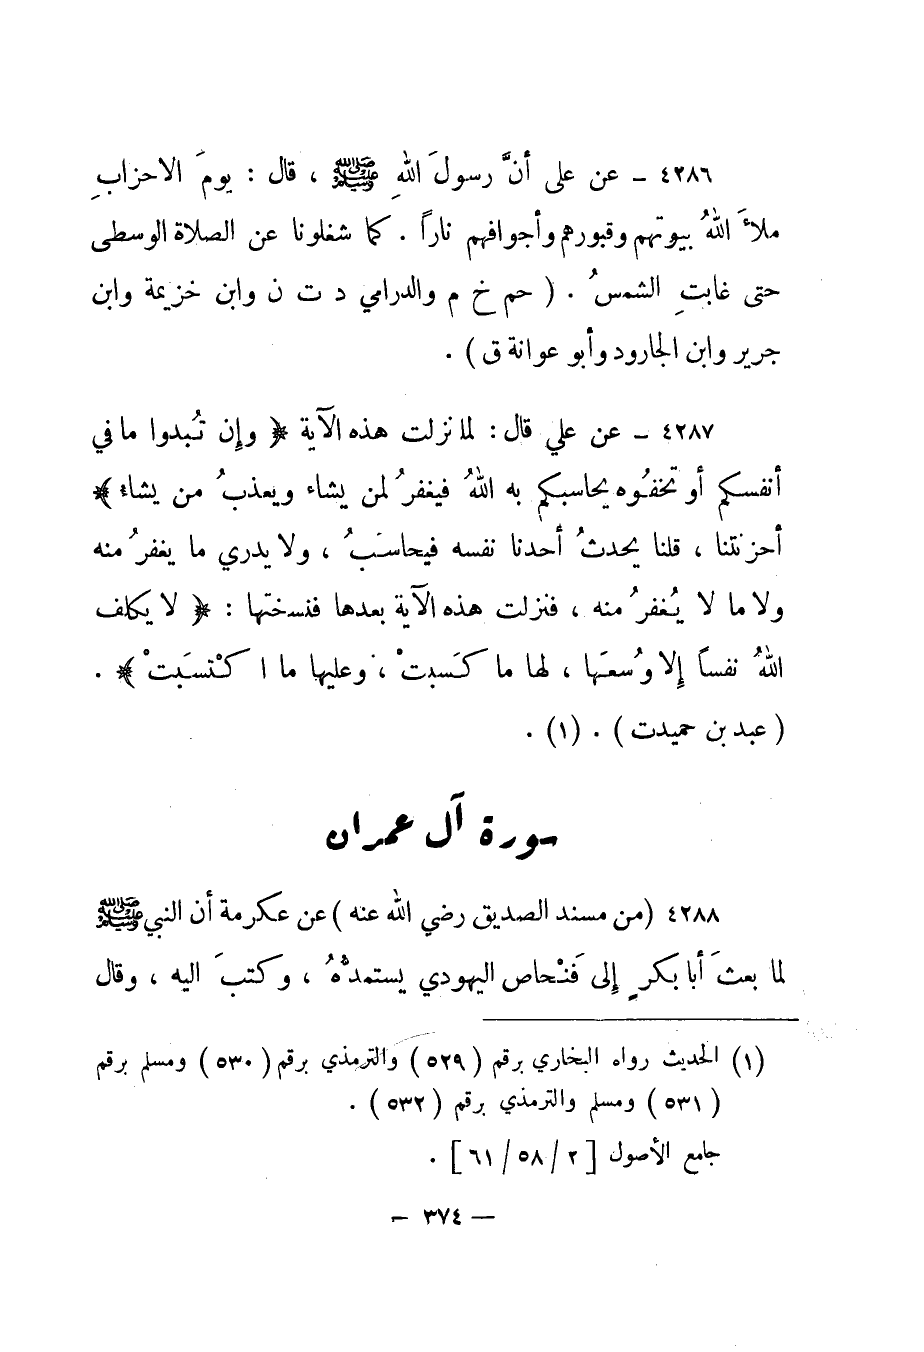 ٤٢٨٦ - عن على أنَّ رسولَ اللهِ ﷺ ، قال : يومَ الاحزابِ
ملاءَ اللهُ بيوتهم وقبورهم وأجوافهم ناراً . كما شغلونا عن الصلاة الوسطى
حتى غابتِ الشمسُ . ( حم خ م والدرامي د ت ن وابن خزيمة وابن
جرير وابن الجارود وأبو عوانة ق ) .
٤٢٨٧ - عن علي قال : لما نزلت هذه الآية ﴿ وإن تُبدوا ما في
أنفسكم أو تخفُوه يحاسبكم به اللهُ فيغفرُ لمن يشاء ويعذبُ من يشاء ﴾
أحزنتنا ، قلنا يحدثُ أحدنا نفسه فيحاسَبُ ، ولا يدري ما يغفرُ منه
ولا ما لا يُغفرُ منه ، فنزلت هذه الآية بعدها فنسختها : ﴿ لا يكلف
اللهُ نفساً إلا وُسعَها ، لها ما كَسبتْ ، وعليها ما اكْتسَبتْ ﴾ .
( عبد بن حميدت ) . (١) .
سورة آل عمران
٤٢٨٨ (من مسند الصديق رضي الله عنه ) عن عكرمة أن النبي ﷺ
لما بعثَ أبا بكرٍ إلى فَنْحاص اليهودي يستمدُّهُ ، وكتبَ اليه ، وقال
(١) الحديث رواه البخاري برقم ( ٥٢٩ ) والترمذي برقم ( ٥٣٠ ) ومسلم برقم
( ٥٣١ ) ومسلم والترمذي برقم ( ٥٣٢ ) .
جامع الأصول [ ٢ / ٥٨ / ٦١ ] .
— ٣٧٤ —